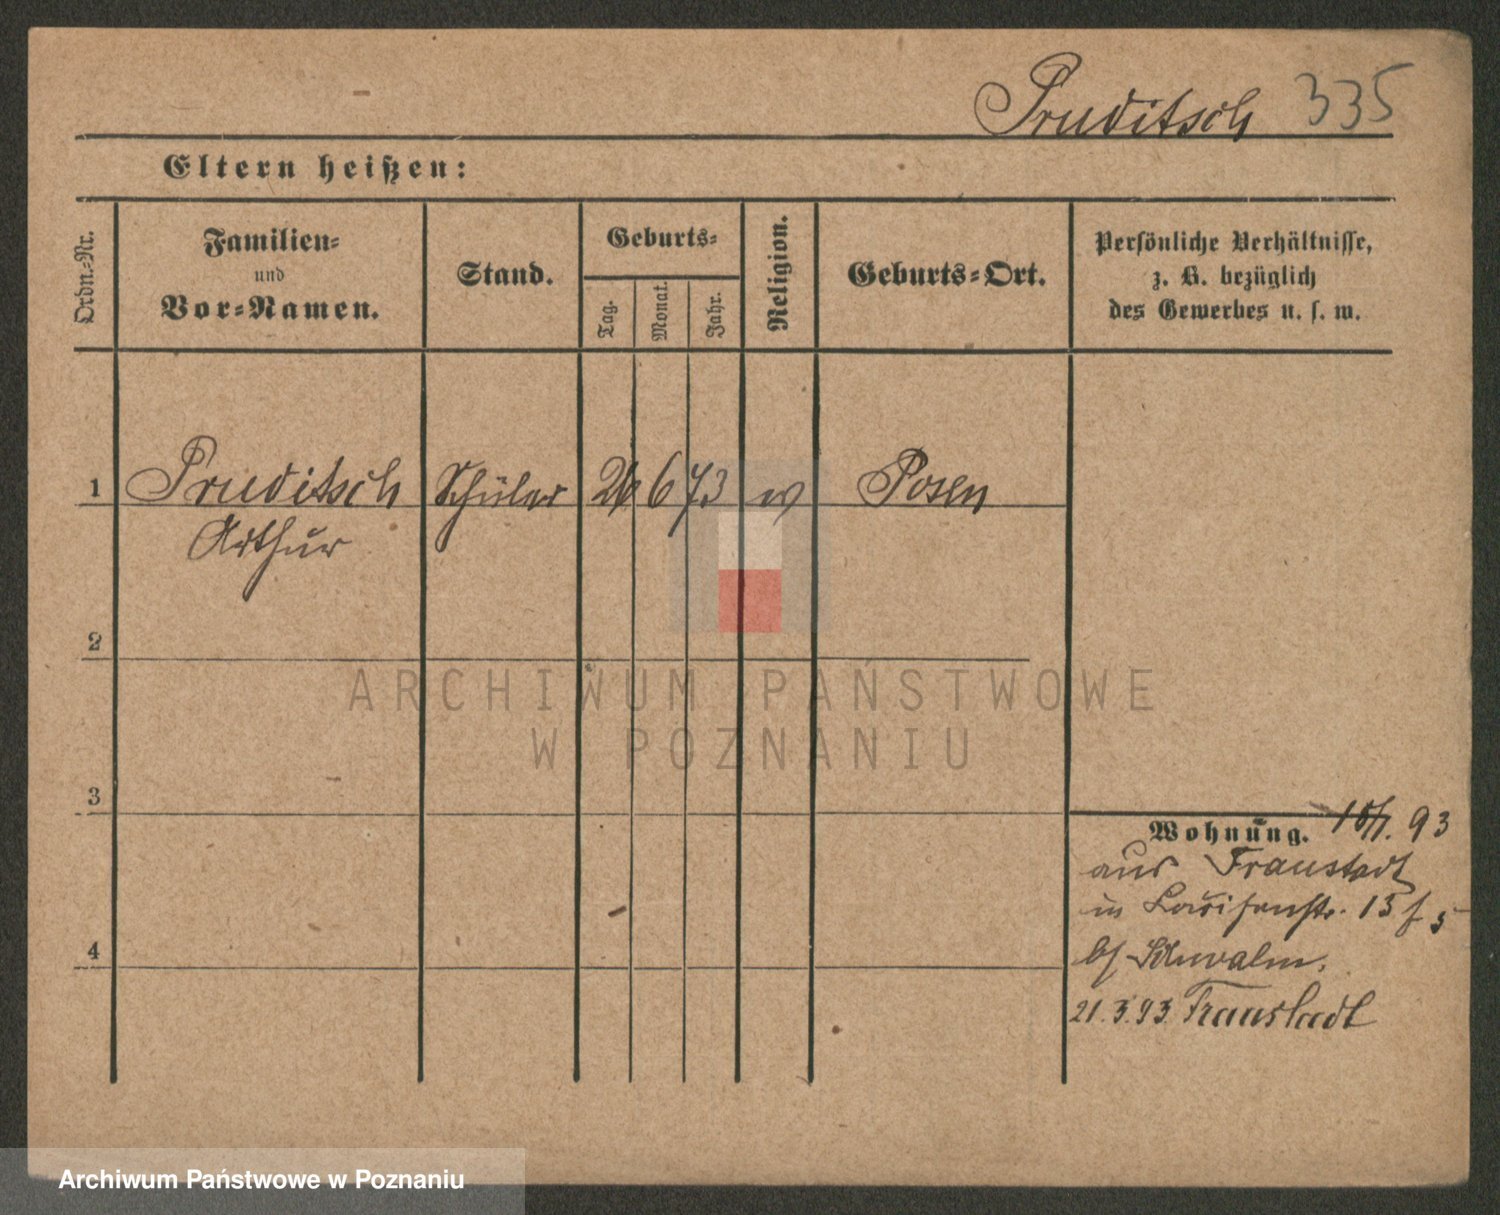 Pruditsch 335
Eltern heißen:
Ordn.-Nr.
Familien-
und
Vor-Namen.
Stand.
Geburts-
Tag.
Monat.
Jahr.
Religion.
Geburts-Ort.
Persönliche Verhältnisse,
z. B. bezüglich
des Gewerbes u. s. w.
1 Pruditsch Schüler 26 6 73 Posen
Arthur
2
3
4
Wohnung. 93
aus Fraustadt
in Louisenstr. 13
21.3.93 Fraustadt
ARCHIWUM PAŃSTWOWE
W POZNANIU
Archiwum Państwowe w Poznaniu